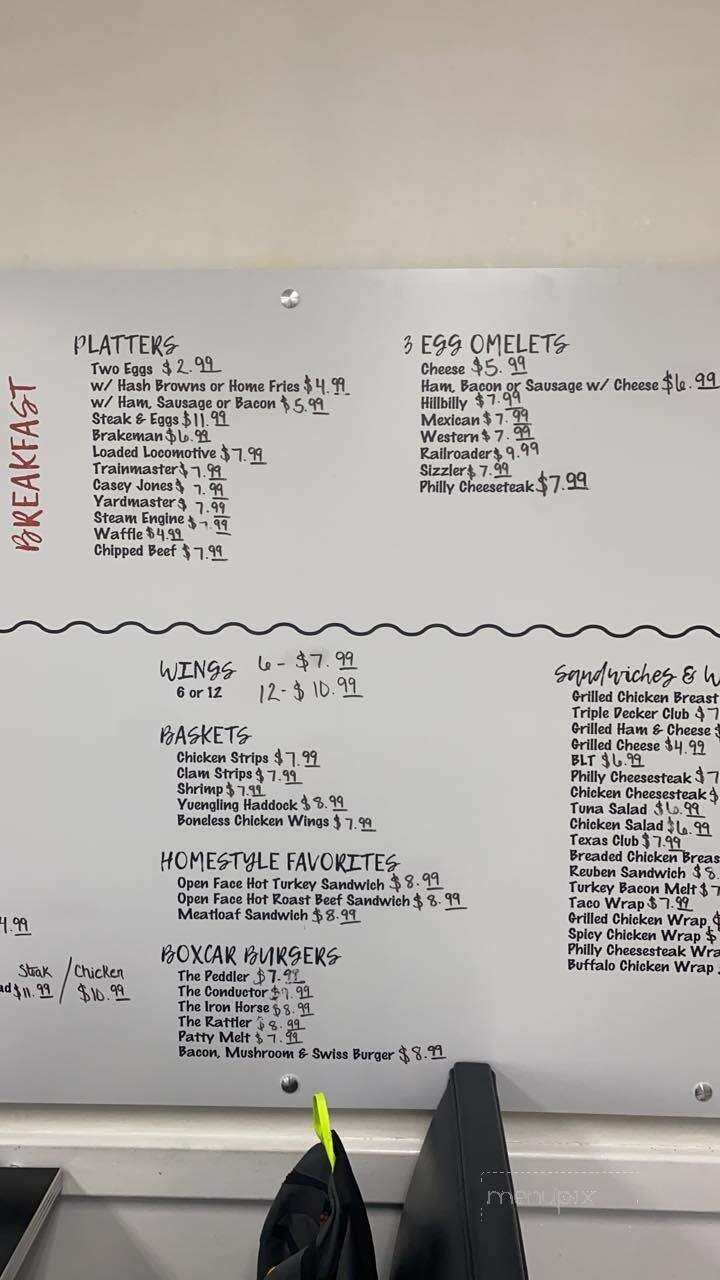 BREAKFAST
PLATTERS
Two Eggs $2.99
w/ Hash Browns or Home Fries $4.99
w/ Ham, Sausage or Bacon $5.99
Steak & Eggs $11.99
Brakeman $6.99
Loaded Locomotive $7.99
Trainmaster $7.99
Casey Jones $7.99
Yardmaster $7.99
Steam Engine $7.99
Waffle $4.99
Chipped Beef $7.99
3 EGG OMELETS
Cheese $5.99
Ham, Bacon or Sausage w/ Cheese $6.99
Hillbilly $7.99
Mexican $7.99
Western $7.99
Railroader $9.99
Sizzler $7.99
Philly Cheeseteak $7.99
4.99
Steak / Chicken
ad $11.99 / $10.99
WINGS 6 - $7.99
6 or 12 12 - $10.99
BASKETS
Chicken Strips $7.99
Clam Strips $7.99
Shrimp $7.99
Yuengling Haddock $8.99
Boneless Chicken Wings $7.99
HOMESTYLE FAVORITES
Open Face Hot Turkey Sandwich $8.99
Open Face Hot Roast Beef Sandwich $8.99
Meatloaf Sandwich $8.99
BOXCAR BURGERS
The Peddler $7.99
The Conductor $7.99
The Iron Horse $8.99
The Rattler $8.99
Patty Melt $7.99
Bacon, Mushroom & Swiss Burger $8.99
Sandwiches & W
Grilled Chicken Breast
Triple Decker Club $7
Grilled Ham & Cheese $
Grilled Cheese $4.99
BLT $6.99
Philly Cheesesteak $7
Chicken Cheesesteak $
Tuna Salad $6.99
Chicken Salad $6.99
Texas Club $7.99
Breaded Chicken Breas
Reuben Sandwich $8.
Turkey Bacon Melt $7
Taco Wrap $7.99
Grilled Chicken Wrap $
Spicy Chicken Wrap $
Philly Cheesesteak Wra
Buffalo Chicken Wrap
menupix